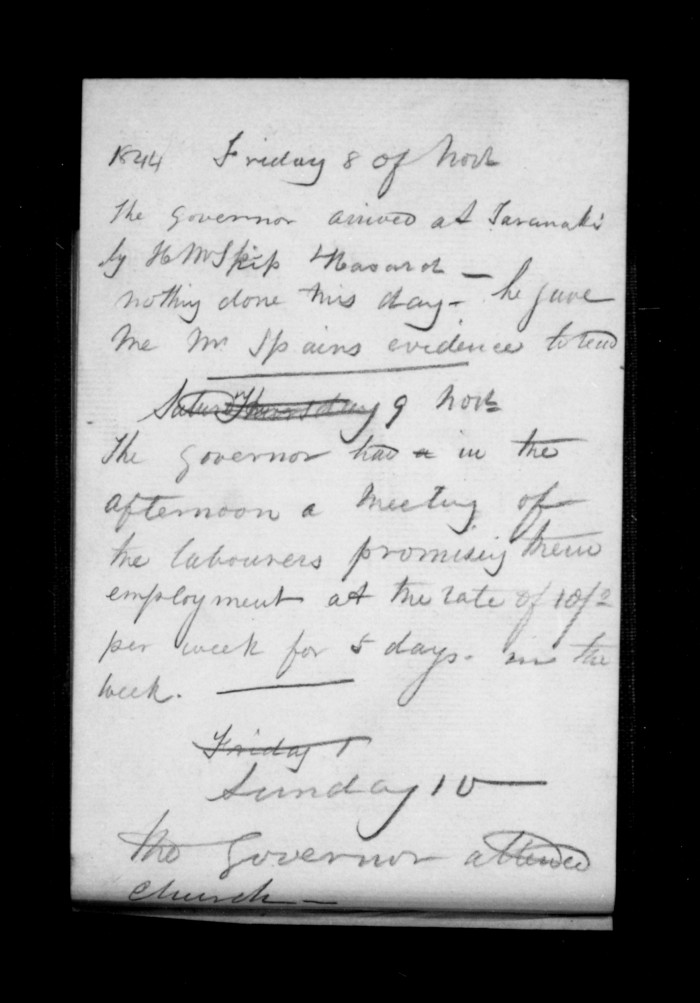 1844 Friday 8 of Novr
The Governor arrived at Taranaki
by H M Ship Hazard —
nothing done this day - he gave
me Mr Spains evidence to read
Saturday Thursday 9 Novr
The Governor had a in the
afternoon a meeting of
the labourers promising them
employment at the rate of 10/2
per week for 5 days. in the
week. —
Friday 1
Sunday 10 —
The Governor attended
church —